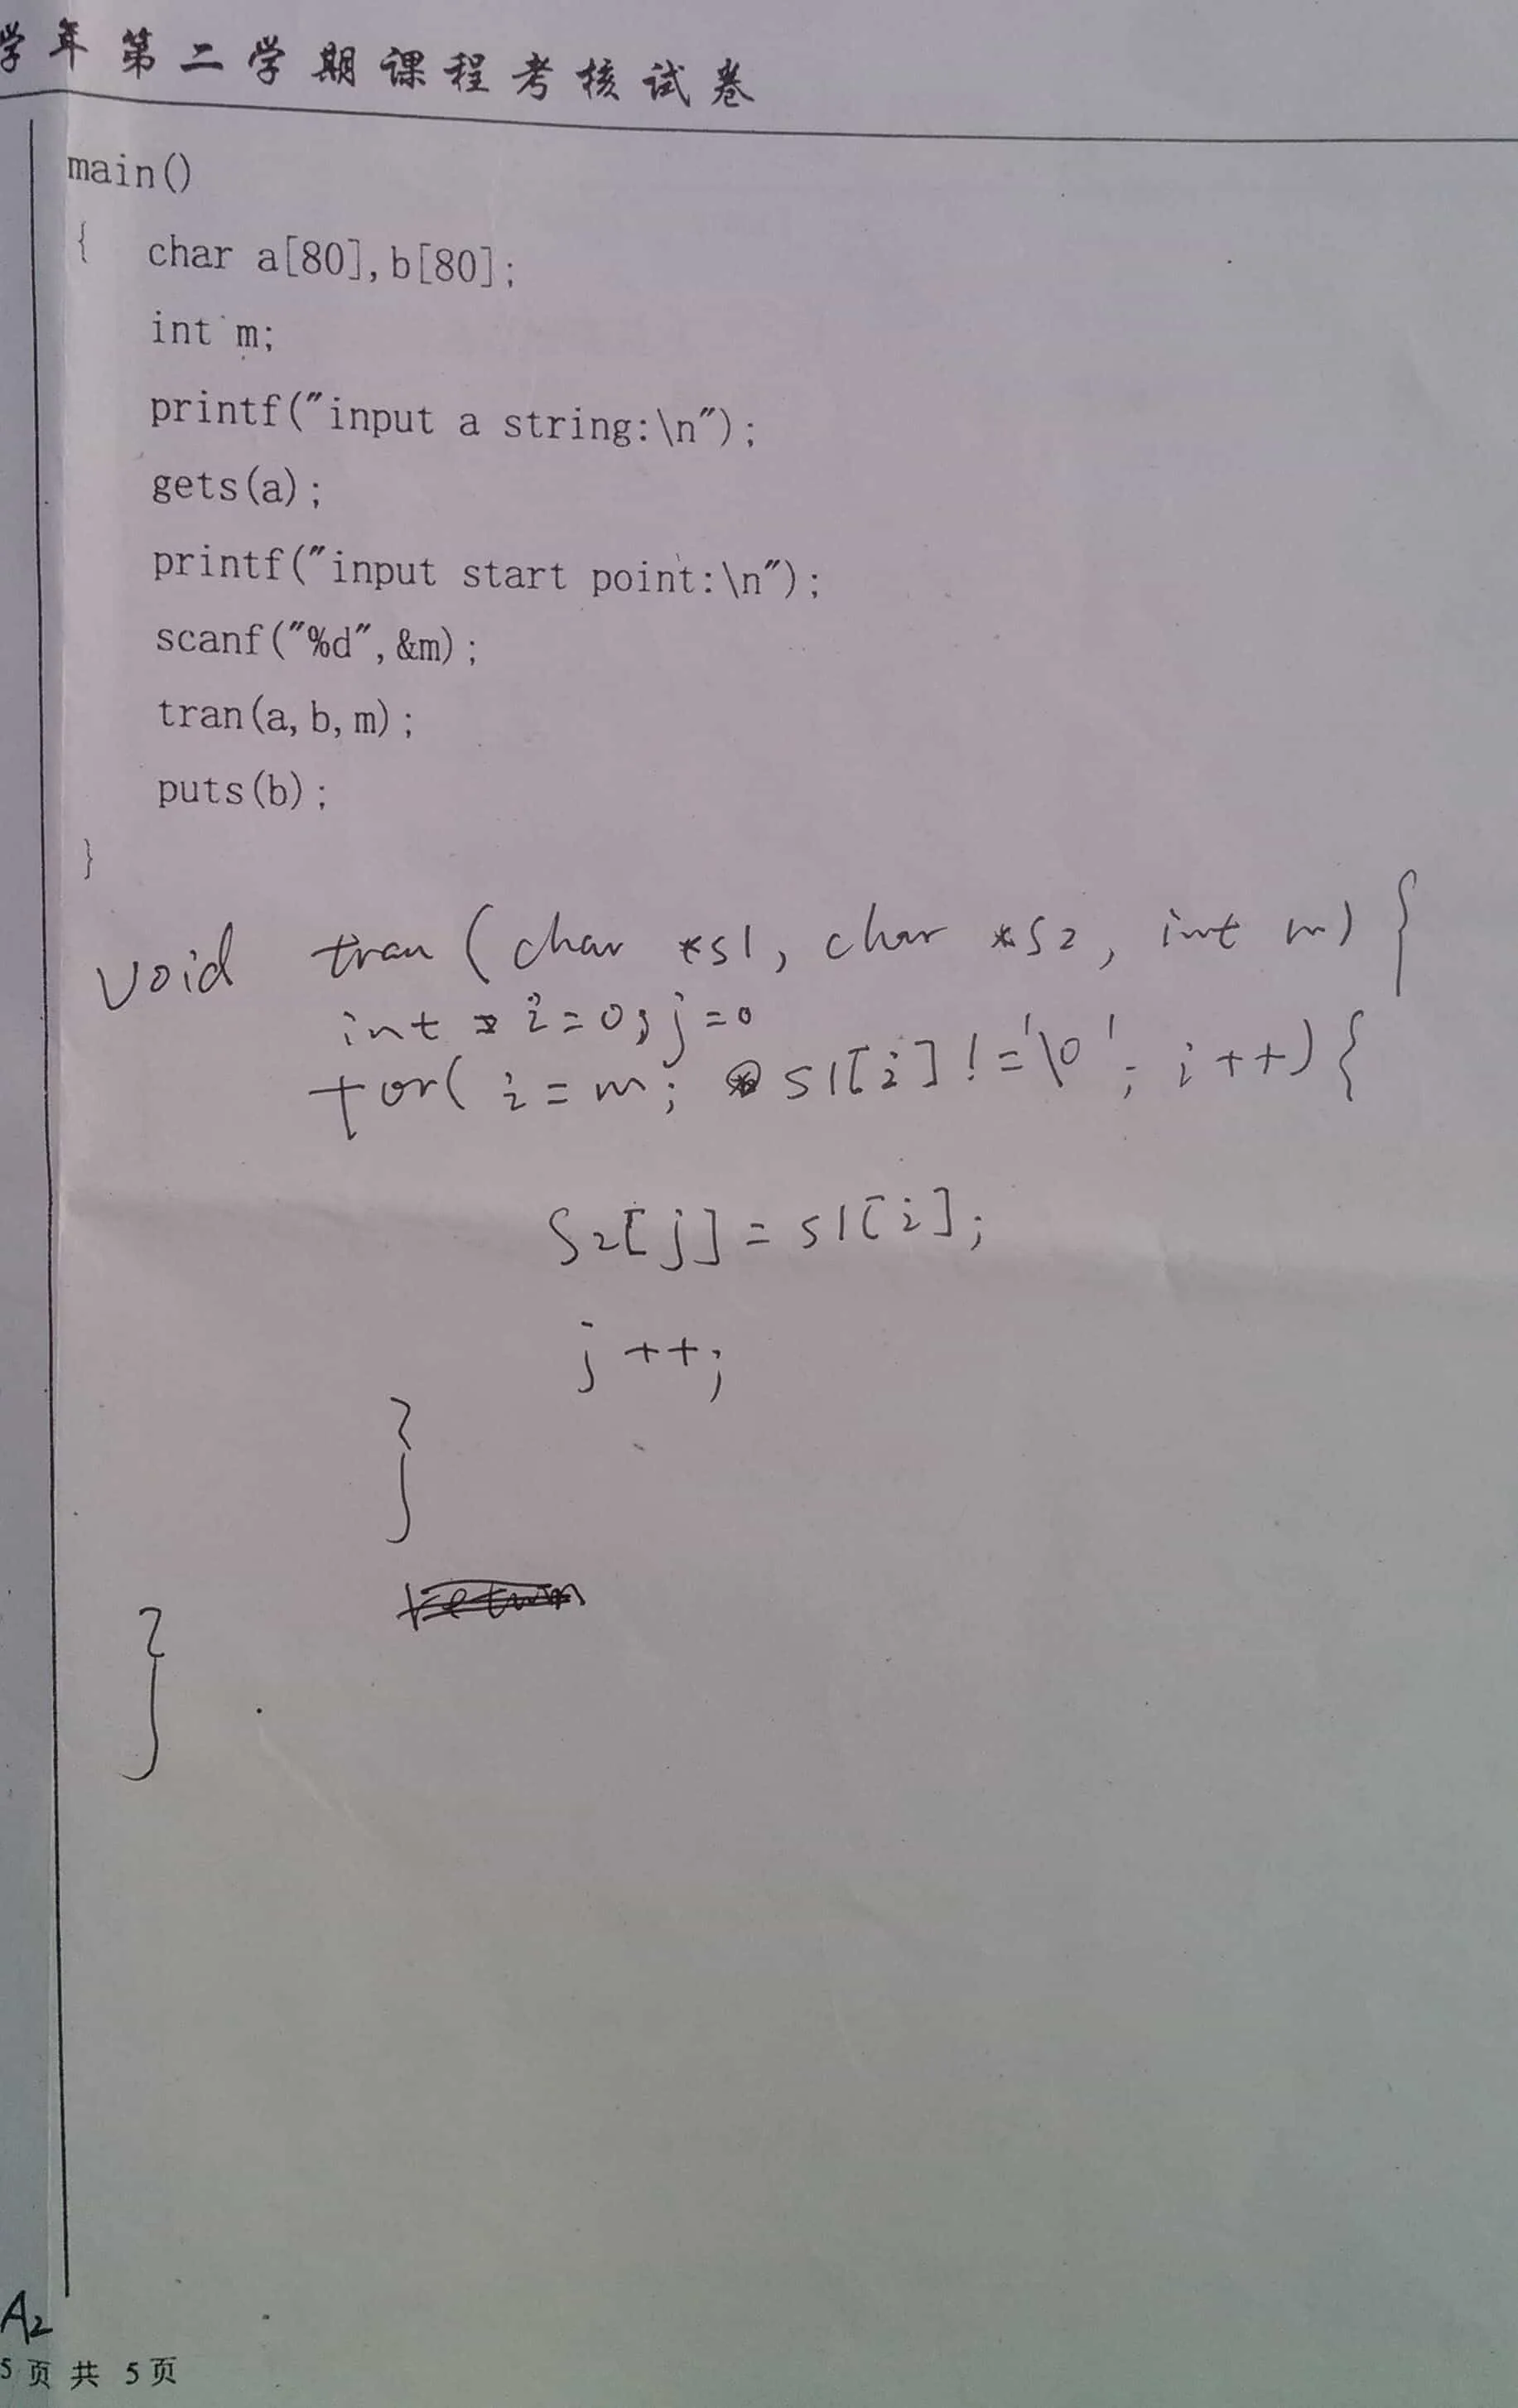 学年第二学期课程考核试卷
main()
{ char a[80],b[80];
int m;
printf("input a string:\n");
gets(a);
printf("input start point:\n");
scanf("%d",&m);
tran(a,b,m);
puts(b);
}
void tran (char *s1, char *s2, int m) {
int i=0; j=0
for( i=m; s1[i]!='\0'; i++){
s2[j]=s1[i];
j++;
}
return
}
A2
5页 共 5页